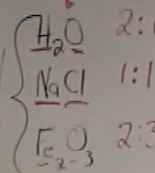 H₂O 2:1
NaCl 1:1
Fe₂O₃ 2:3